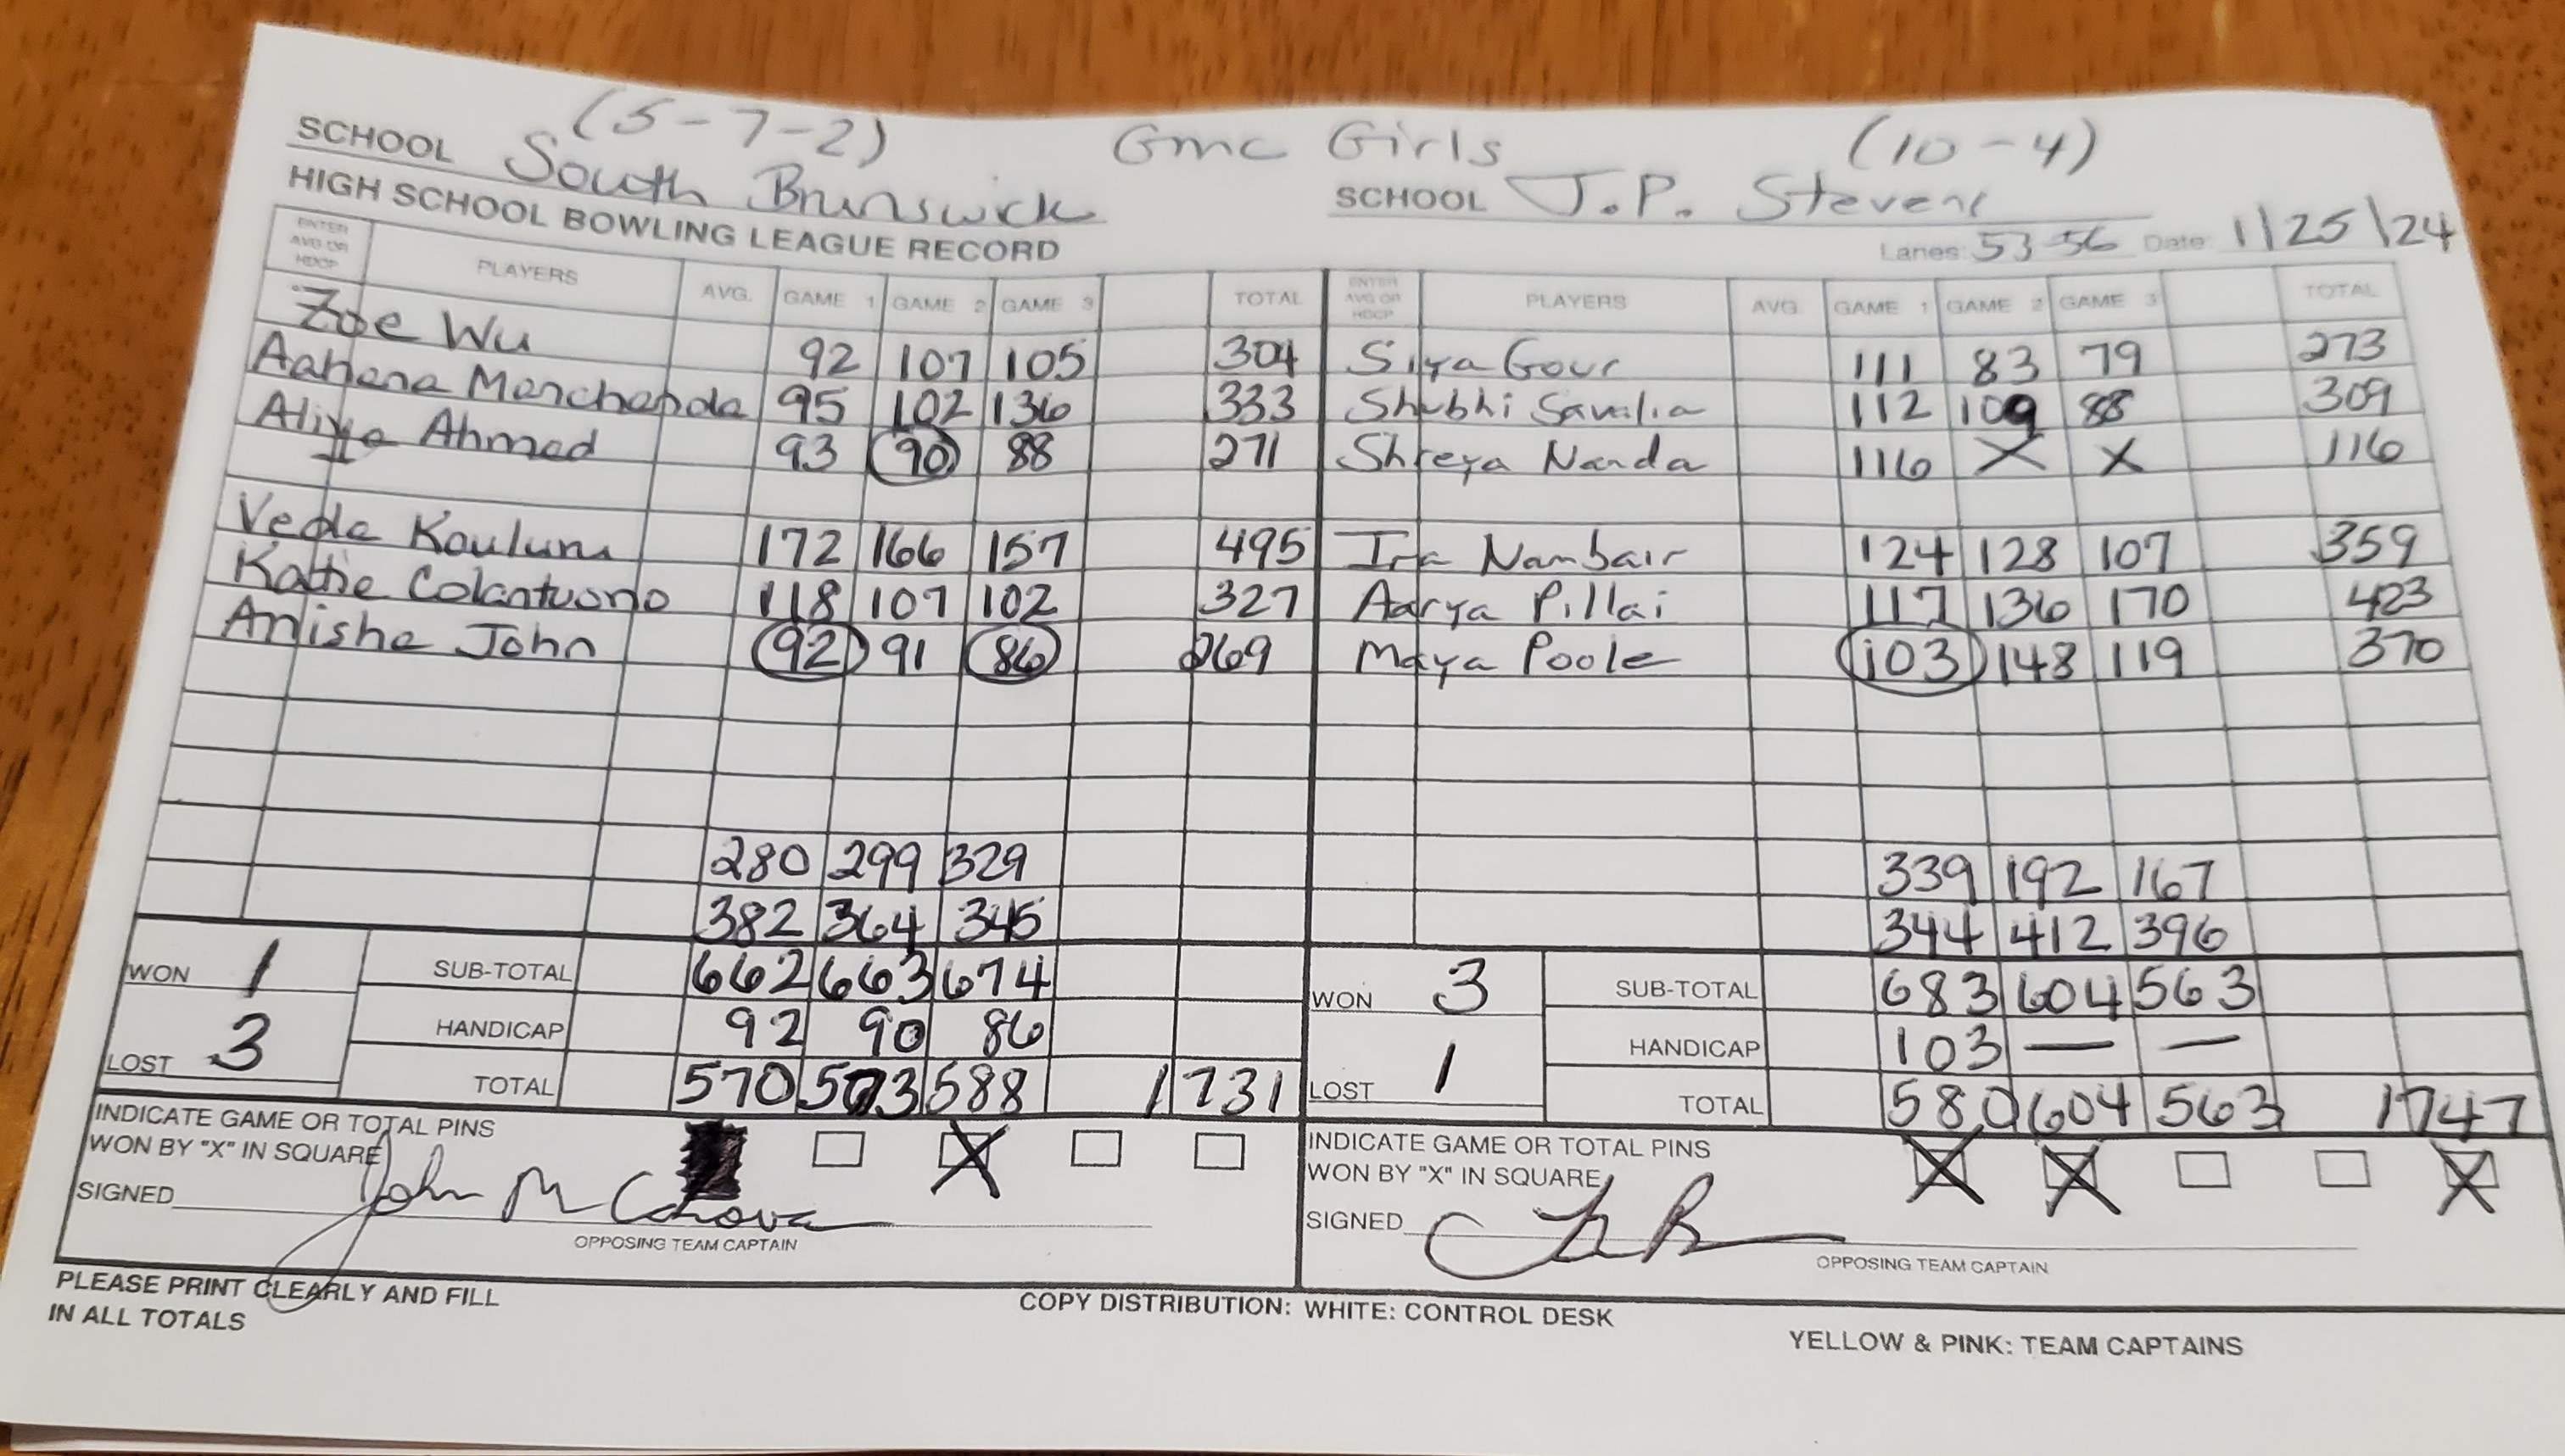 (5-7-2) Gmc Girls (10-4)
SCHOOL South Brunswick SCHOOL J.P. Stevens
HIGH SCHOOL BOWLING LEAGUE RECORD Lanes: 53-56 Date: 1/25/24
ENTER AVG OR HDCP PLAYERS AVG. GAME 1 GAME 2 GAME 3 TOTAL ENTER AVG OR HDCP PLAYERS AVG. GAME 1 GAME 2 GAME 3 TOTAL
Zoe Wu 92 107 105 304 Siya Gour 111 83 79 273
Aahana Manchanda 95 102 136 333 Shubhi Savalia 112 109 88 309
Aliya Ahmed 93 90 88 271 Shreya Nanda 116 X X 116
Veda Koulum 172 166 157 495 Ira Nambair 124 128 107 359
Katie Colantuono 118 107 102 327 Aarya Pillai 117 136 170 423
Anisha John 92 91 86 269 Maya Poole 103 148 119 370
280 299 329 339 192 167
382 364 345 344 412 396
WON 1 SUB-TOTAL 662 663 674 WON 3 SUB-TOTAL 683 604 563
HANDICAP 92 90 86 HANDICAP 103 — —
LOST 3 TOTAL 570 573 588 1731 LOST 1 TOTAL 580 604 563 1747
INDICATE GAME OR TOTAL PINS INDICATE GAME OR TOTAL PINS
WON BY "X" IN SQUARE X WON BY "X" IN SQUARE X X X
SIGNED John SIGNED
OPPOSING TEAM CAPTAIN OPPOSING TEAM CAPTAIN
PLEASE PRINT CLEARLY AND FILL
IN ALL TOTALS
COPY DISTRIBUTION: WHITE: CONTROL DESK
YELLOW & PINK: TEAM CAPTAINS